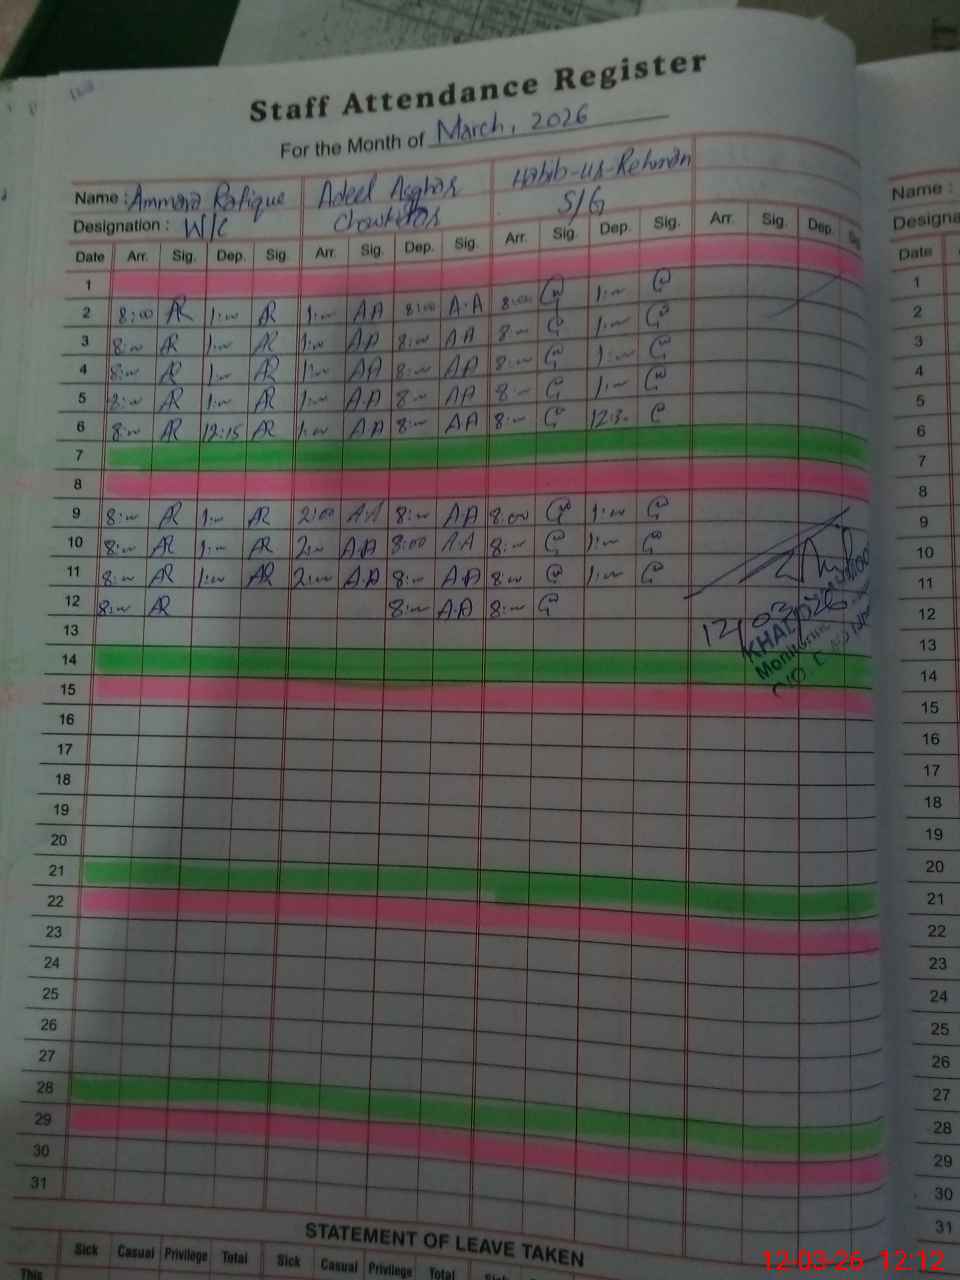 Staff Attendance Register
For the Month of March, 2026
Name : Ammara Rafique Adeel Asghar Habib-ur-Rehman
Designation : W/C Chowkidar S/G
Date Arr. Sig. Dep. Sig. Arr. Sig. Dep. Sig. Arr. Sig. Dep. Sig. Arr. Sig. Dep.
1
2 8:00 AR 1:00 AR 1:00 AA 8:00 A.A 8:00 1:00
3 8:00 AR 1:00 AR 1:00 AA 8:00 AA 8:00 1:00
4 8:00 AR 1:00 AR 1:00 AA 8:00 AA 8:00 1:00
5 8:00 AR 1:00 AR 1:00 AA 8:00 AA 8:00 1:00
6 8:00 AR 12:15 AR 1:00 AA 8:00 AA 8:00 12:30
7
8
9 8:00 AR 1:00 AR 2:00 AA 8:00 AA 8:00 1:00
10 8:00 AR 1:00 AR 2:00 AA 8:00 AA 8:00 1:00
11 8:00 AR 1:00 AR 2:00 AA 8:00 AA 8:00 1:00
12 8:00 AR 8:00 A.A 8:00
12/03/026
13
14
15
16
17
18
19
20
21
22
23
24
25
26
27
28
29
30
31
STATEMENT OF LEAVE TAKEN
Sick Casual Privilege Total Sick Casual Privilege Total
This
Name :
Date
1
2
3
4
5
6
7
8
9
10
11
12
13
14
15
16
17
18
19
20
21
22
23
24
25
26
27
28
29
30
31
12-03-26 12:12